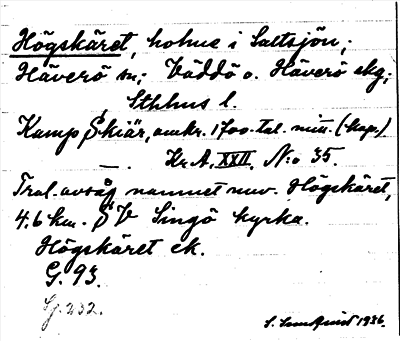 Högskäret, holme i Saltsjön,
Häverö sn; Väddö o. Häverö skg;
Sthlms l.
Kamp Skiär, omkr. 1700-tal. mitt. (kop.)
— . Kr. A. XXII. N:o 35.
Trol. avsåg namnet nuv. Högskäret,
4.6 km. SV Singö kyrka.
Högskäret ek.
G. 93.
Gj. 232.
S. 1936.